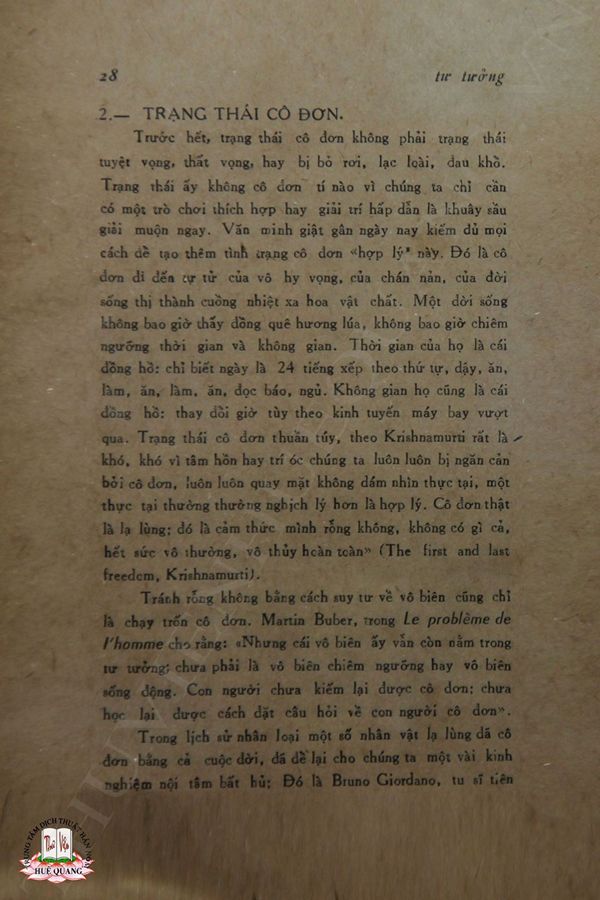 28 tư tưởng
2.— TRẠNG THÁI CÔ ĐƠN.
Trước hết, trạng thái cô đơn không phải trạng thái
tuyệt vọng, thất vọng, hay bị bỏ rơi, lạc loài, đau khổ.
Trạng thái ấy không cô đơn tí nào vì chúng ta chỉ cần
có một trò chơi thích hợp hay giải trí hấp dẫn là khuây sầu
giải muộn ngay. Văn minh giật gân ngày nay kiếm đủ mọi
cách để tạo thêm tình trạng cô đơn «hợp lý" này. Đó là cô
đơn đi đến tự tử của vô hy vọng, của chán nản, của đời
sống thị thành cuồng nhiệt xa hoa vật chất. Một đời sống
không bao giờ thấy đồng quê hương lúa, không bao giờ chiêm
ngưỡng thời gian và không gian. Thời gian của họ là cái
đồng hồ: chỉ biết ngày là 24 tiếng xếp theo thứ tự, dậy, ăn,
làm, ăn, làm, ăn, đọc báo, ngủ. Không gian họ cũng là cái
đồng hồ: thay đổi giờ tùy theo kinh tuyến máy bay vượt
qua. Trạng thái cô đơn thuần túy, theo Krishnamurti rất là
khó, khó vì tâm hồn hay trí óc chúng ta luôn luôn bị ngăn cản
bởi cô đơn, luôn luôn quay mặt không dám nhìn thực tại, một
thực tại thường thường nghịch lý hơn là hợp lý. Cô đơn thật
là lạ lùng: đó là cảm thức mình rỗng không, không có gì cả,
hết sức vô thường, vô thủy hoàn toàn» (The first and last
freedom, Krishnamurti).
Tránh rỗng không bằng cách suy tư về vô biên cũng chỉ
là chạy trốn cô đơn. Martin Buber, trong Le problème de
l'homme cho rằng: «Nhưng cái vô biên ấy vẫn còn nằm trong
tư tưởng; chưa phải là vô biên chiêm ngưỡng hay vô biên
sống động. Con người chưa kiếm lại được cô đơn; chưa
học lại được cách đặt câu hỏi về con người cô đơn».
Trong lịch sử nhân loại một số nhân vật lạ lùng đã cô
đơn bằng cả cuộc đời, đã để lại cho chúng ta một vài kinh
nghiệm nội tâm bất hủ: Đó là Bruno Giordano, tu sĩ tiên
TRUNG TÂM DỊCH THUẬT HÁN NÔM
Thư Viện
HUỆ QUANG